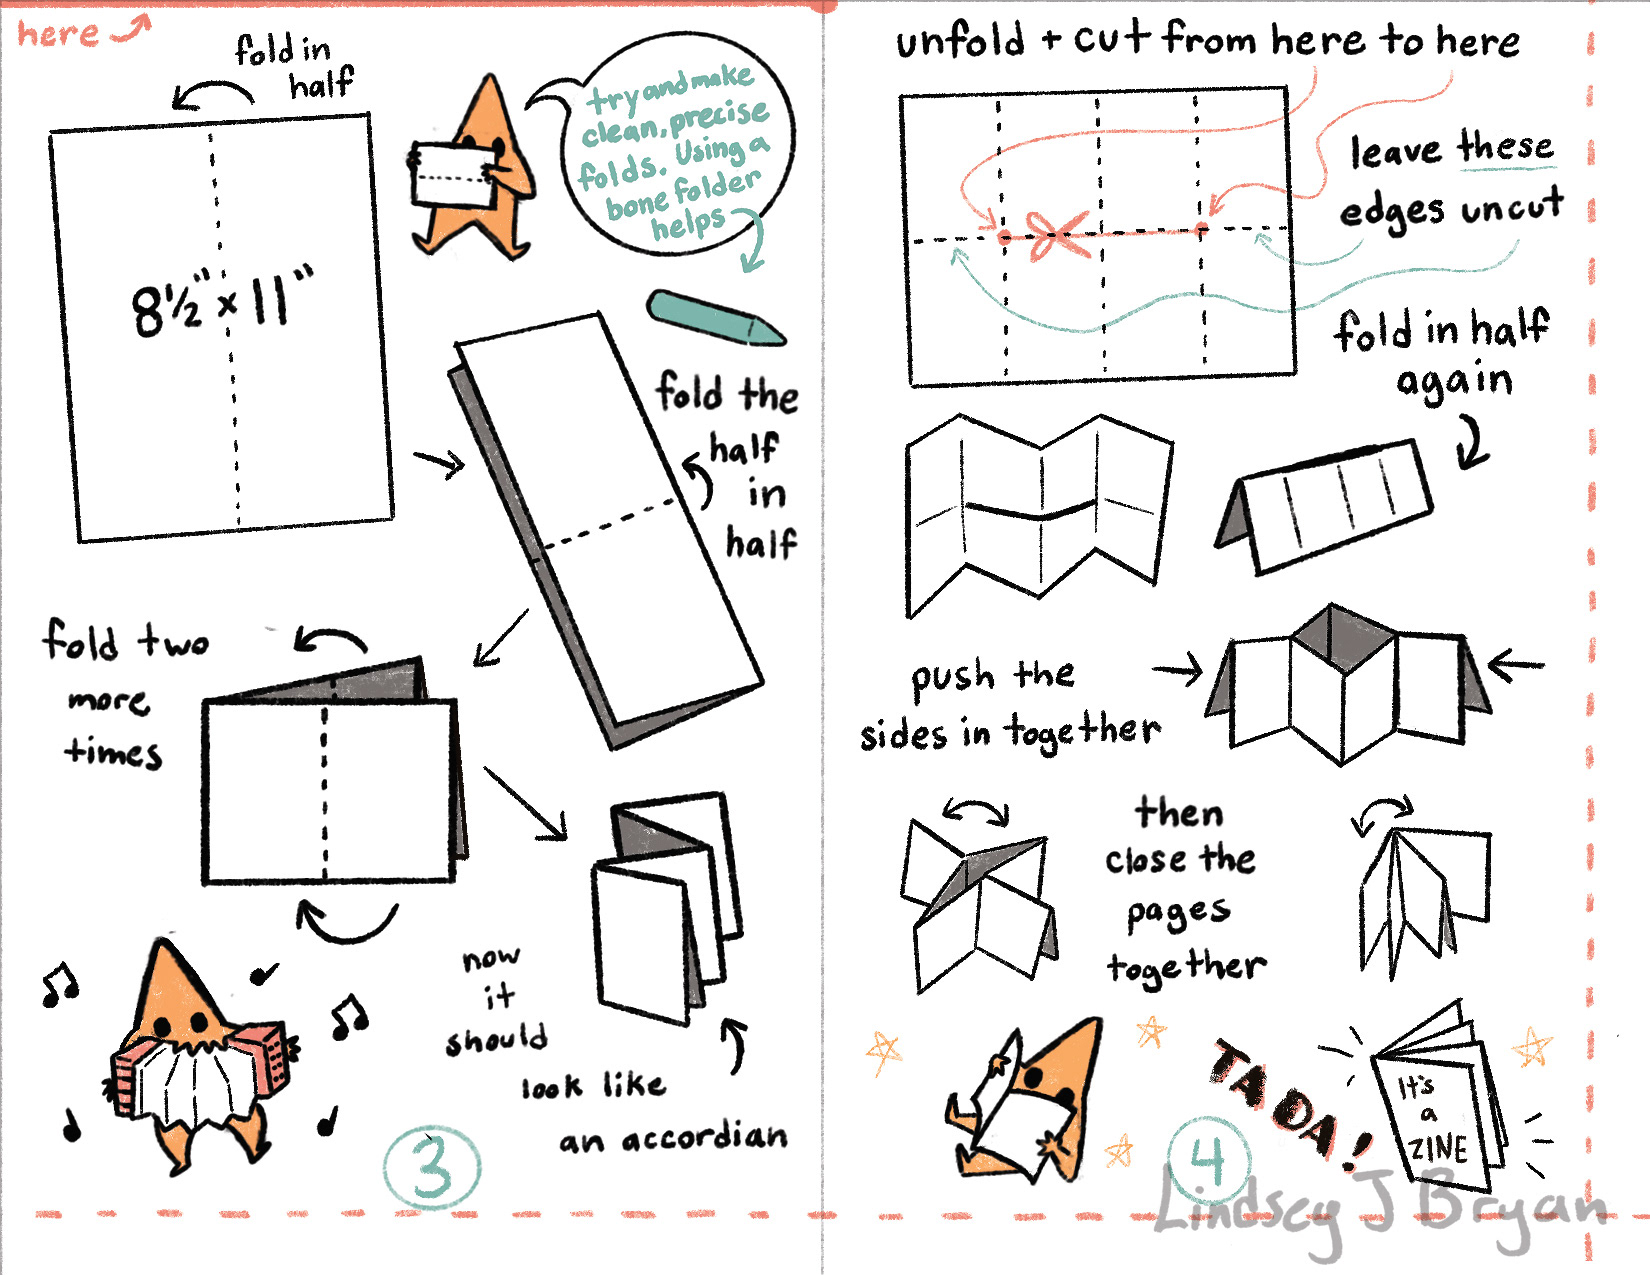 here
fold in
half
8½" x 11"
try and make
clean, precise
folds. Using a
bone folder
helps
fold the
half
in
half
fold two
more
times
now
it
should
look like
an accordian
3
unfold + cut from here to here
leave these
edges uncut
fold in half
again
push the
sides in together
then
close the
pages
together
TA DA!
It's
a
ZINE
4
Lindsey J Bryan